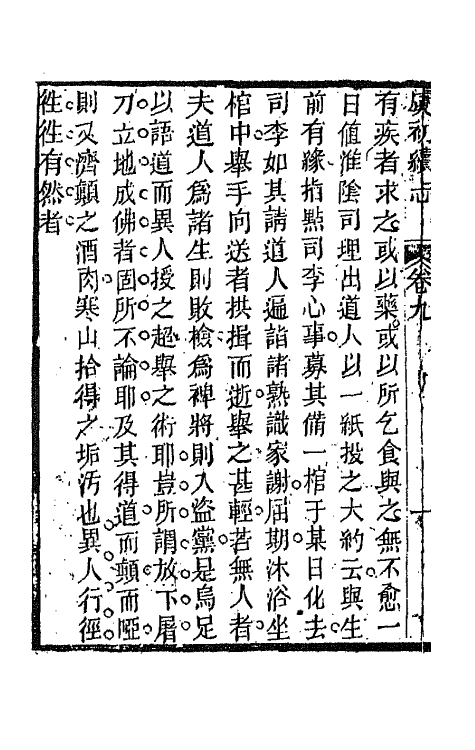 虞初續志 卷九
有疾者求之或以藥或以所乞食與之無不愈一
日值淮陰司理出道人以一紙投之大約云與生
前有緣指點司李心事募其備一棺于某日化去
司李如其請道人遍詣諸熟識家謝屆期沐浴坐
棺中舉手向送者拱揖而逝舉之甚輕若無人者
夫道人爲諸生則敗檢爲裨將則入盜黨是烏足
以語道而異人授之超舉之術耶豈所謂放下屠
刀立地成佛者固所不論耶及其得道而顛而啞
則又濟顛之酒肉寒山拾得之垢汚也異人行徑
徃徃有然者